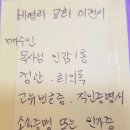 비영리 교회 이전시
매수인
목사님 인감 1통
정관. 회의록
고유번호증. 직인증명서
소속증명 또는 인가증